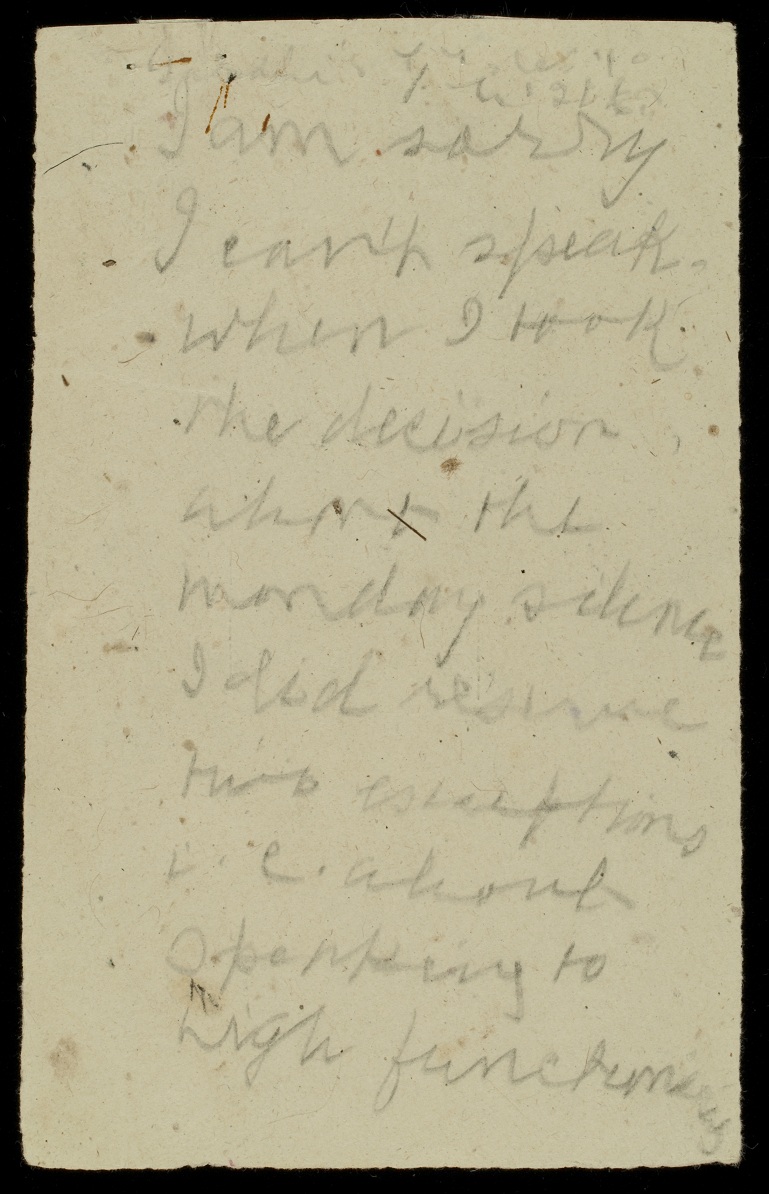 Gandhi's
I am sorry
I can't speak.
when I took
the decision
about the
monday silence
I did reserve
two exceptions
i. e. about
speaking to
high functionaries